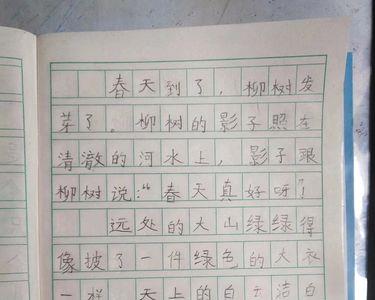 春天到了，柳树发
芽了。柳树的影子照在
清澈的河水上，影子跟
柳树说：“春天真好呀！
远处的大山绿绿得
像坡了一件绿色的大衣
一样，天上的白云洁白